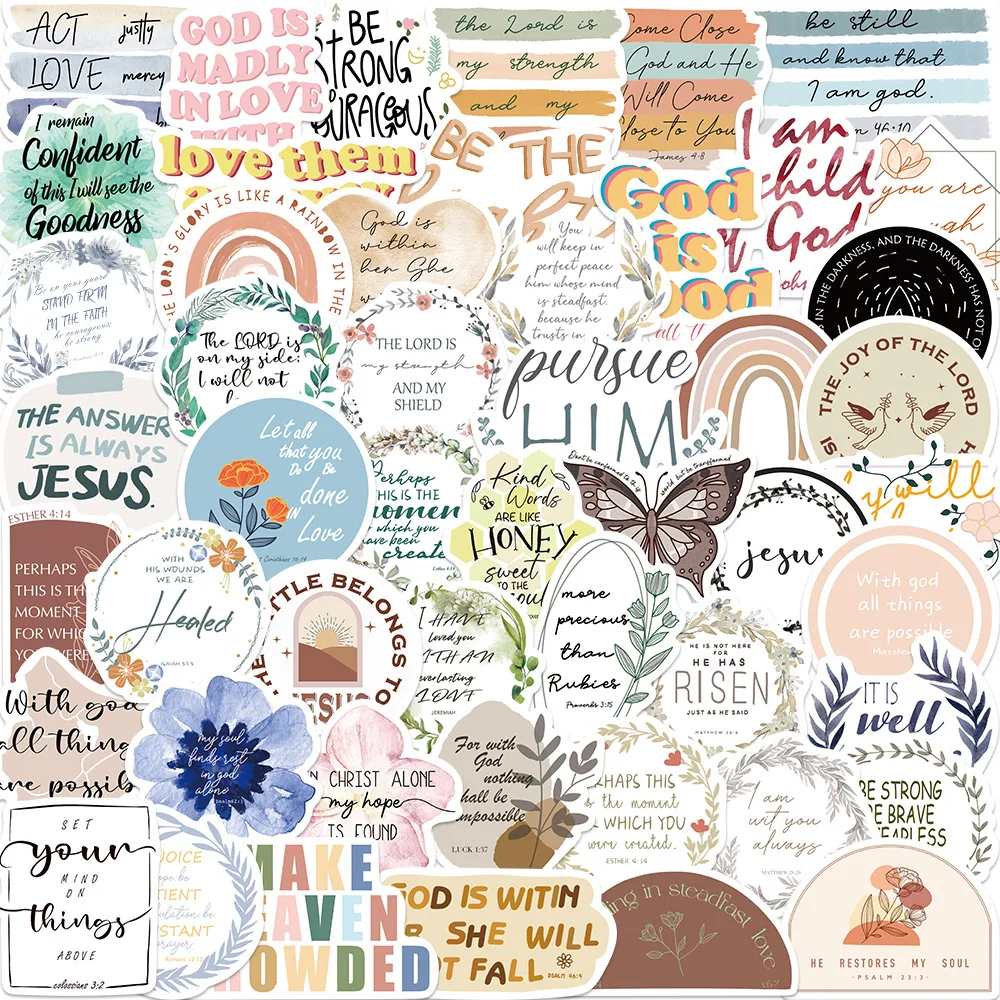 ACT justly
LOVE mercy
GOD IS
MADLY
IN LOVE
WITH
BE
STRONG
the Lord is
my strength
and my
Come Close
God and He
Will Come
Close to You
James 4:8
be still
and know that
I am god.
46:10
I remain
Confident
of this I will see the
Goodness
love them
BE THE
God
is
I am
child
God
you are
THE LORD'S GLORY IS LIKE A RAINBOW IN THE
God is
within
her She
You
will keep in
perfect peace
him whose mind
is steadfast,
because he
trusts in
IN THE DARKNESS, AND THE DARKNESS HAS NOT
Be on your guard
STAND FIRM
IN THE FAITH
be courageous
be strong
The LORD is
on my side:
I will not
THE LORD IS
my strength
AND MY
SHIELD
pursue
HIM
THE JOY OF THE LORD
IS
THE ANSWER
IS ALWAYS
JESUS.
Let all
that you
Do Be
done
IN
Love
1 Corinthians 16:14
Perhaps
THIS IS THE
moment
which you
have been
create
Kind
Words
ARE LIKE
HONEY
sweet
TO THE
soul
Don't be conformed to this
world, but be transformed
jesus
will
ESTHER 4:14
PERHAPS
THIS IS TH
MOMENT
FOR WHIC
YOU WERE
WITH
HIS WOUNDS
WE ARE
Healed
ISAIAH 53:5
LITTLE BELONGS TO
JESUS
I HAVE
loved you
WITH AN
everlasting
LOVE
JEREMIAH
more
precious
than
Rubies
Proverbs 3:15
HE IS NOT HERE
FOR
HE HAS
RISEN
JUST AS HE SAID
MATTHEW 28:6
With god
all things
are possible
Matthew
IT IS
well
With god
all thing
are possib
my soul
finds rest
in god
alone
Psalm 62:1
IN CHRIST ALONE
my hope
IS FOUND
For with
God
nothing
shall be
impossible
LUCK 1:37
PERHAPS THIS
IS the moment
WHICH YOU
were created.
ESTHER 4:14
I am
wit you
always
MATTHEW 28:20
BE STRONG
BE BRAVE
FEARLESS
SET
your
MIND
ON
things
ABOVE
colossians 3:2
prayer
Romans 12:12
MAKE
HEAVEN
CROWDED
GOD IS WITIN
SHE WILL
FALL
PSALM 46:5
in steadfast love
HE RESTORES MY SOUL
- PSALM 23:3 -